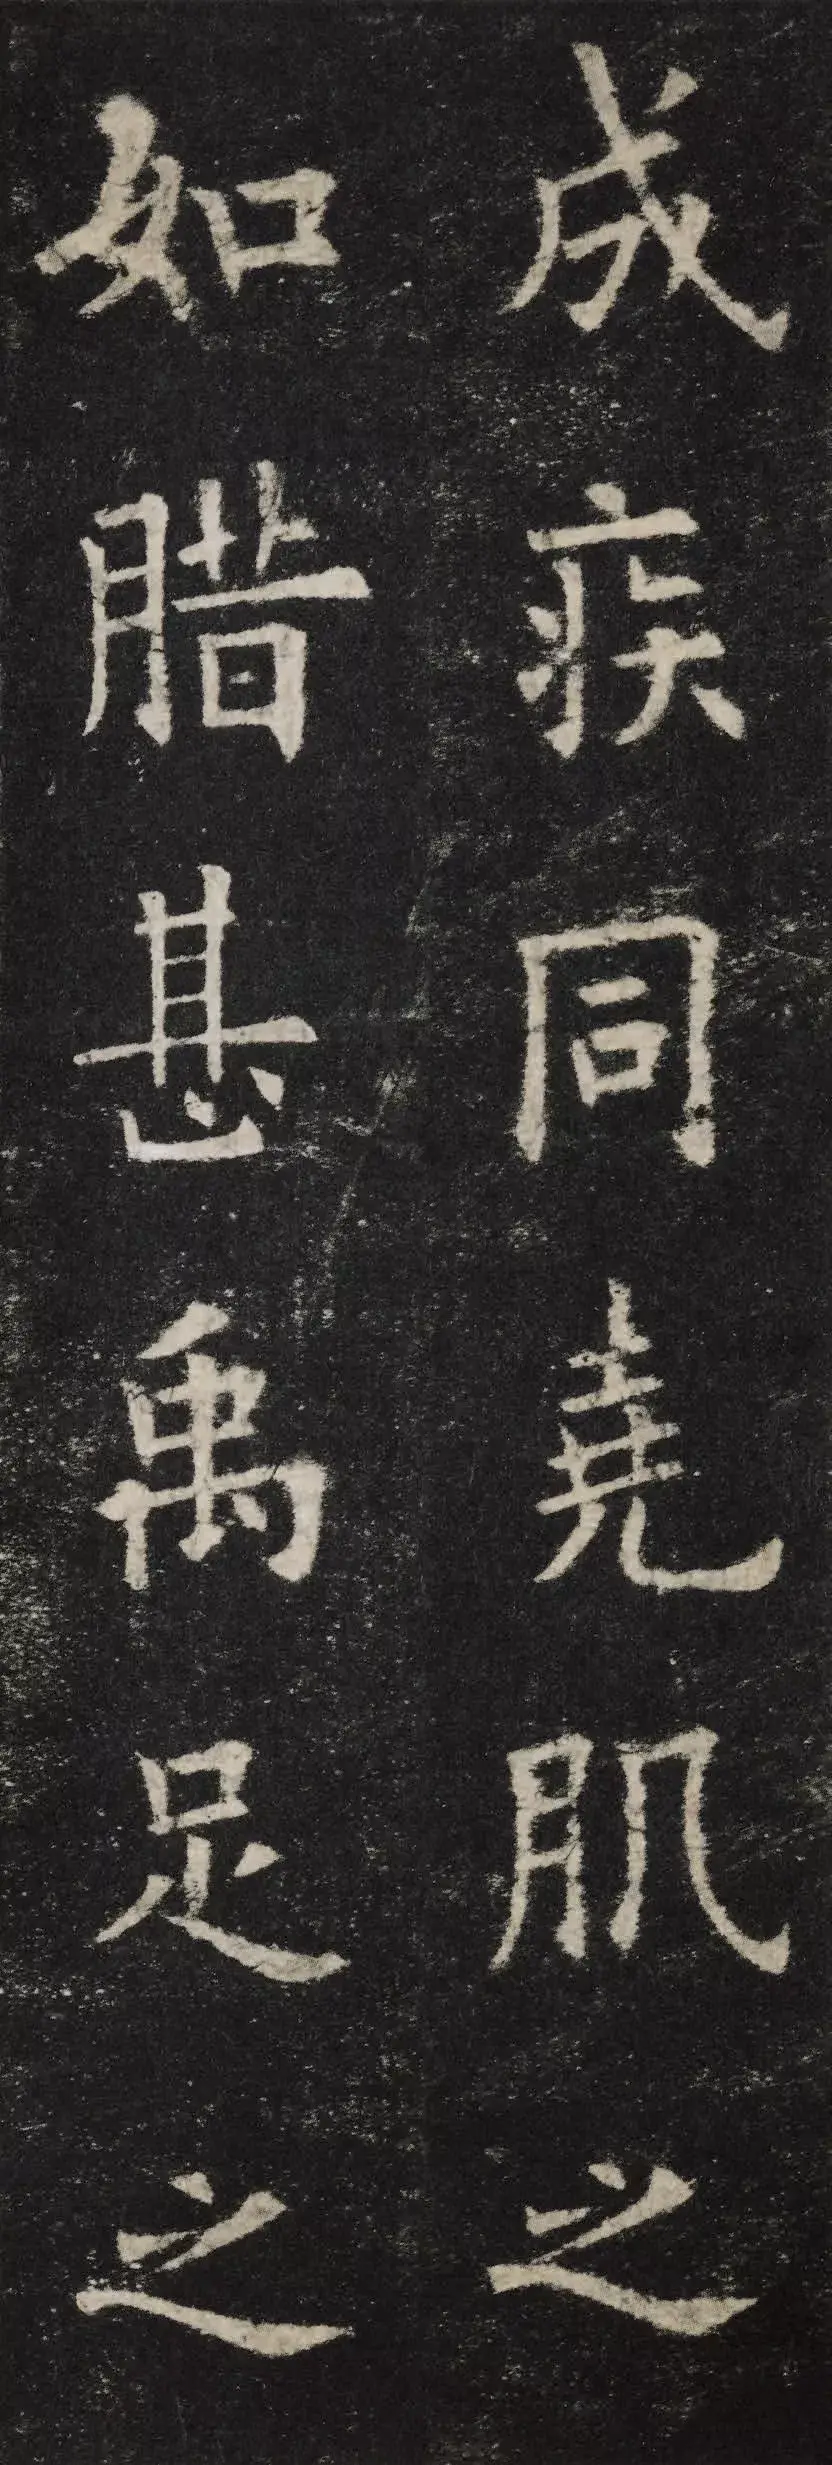 成疾同堯肌之
如腊甚禹足之